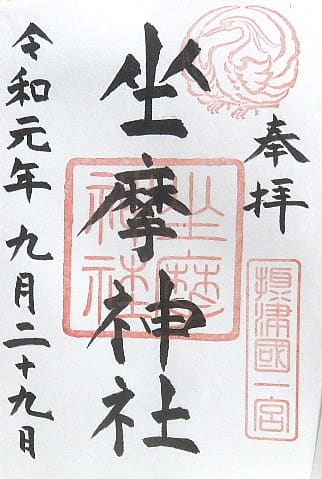 奉拝
摂津國一宮
坐摩神社
坐摩
神社
令和元年九月二十九日